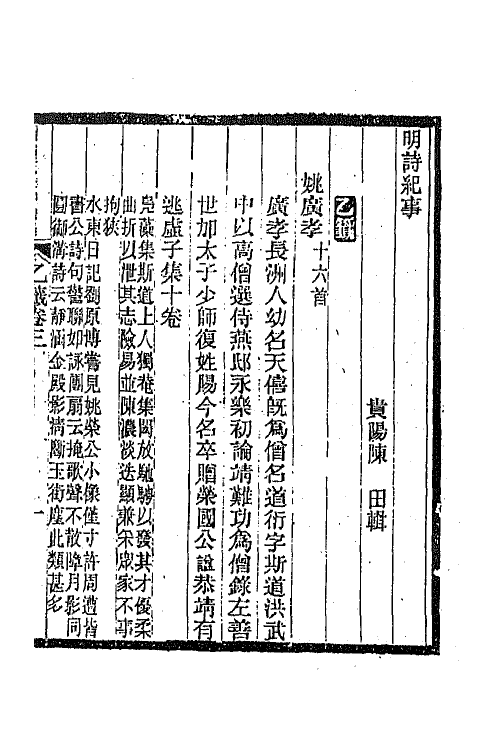 明詩紀事
貴陽陳　田輯
乙籤
姚廣孝十六首
廣孝長洲人幼名天僖旣為僧名道衍字斯道洪武
中以高僧選侍燕邸永樂初論靖難功為僧錄左善
世加太子少師復姓賜今名卒贈榮國公諡恭靖有
逃虛子集十卷
鳧藻集斯道上人獨菴集閎放馳騁以發其才優柔
曲折以泄其志險易並陳濃淡迭顯兼采眾家不事
拘狹
水東日記劉原博嘗見姚榮公小像僅寸許周遭皆
書公詩句數聯如詠團扇云掩歌聲不散障月影同
圓御溝詩云靜涵金殿影淸隔玉街塵此類甚多
乙籤卷三
一